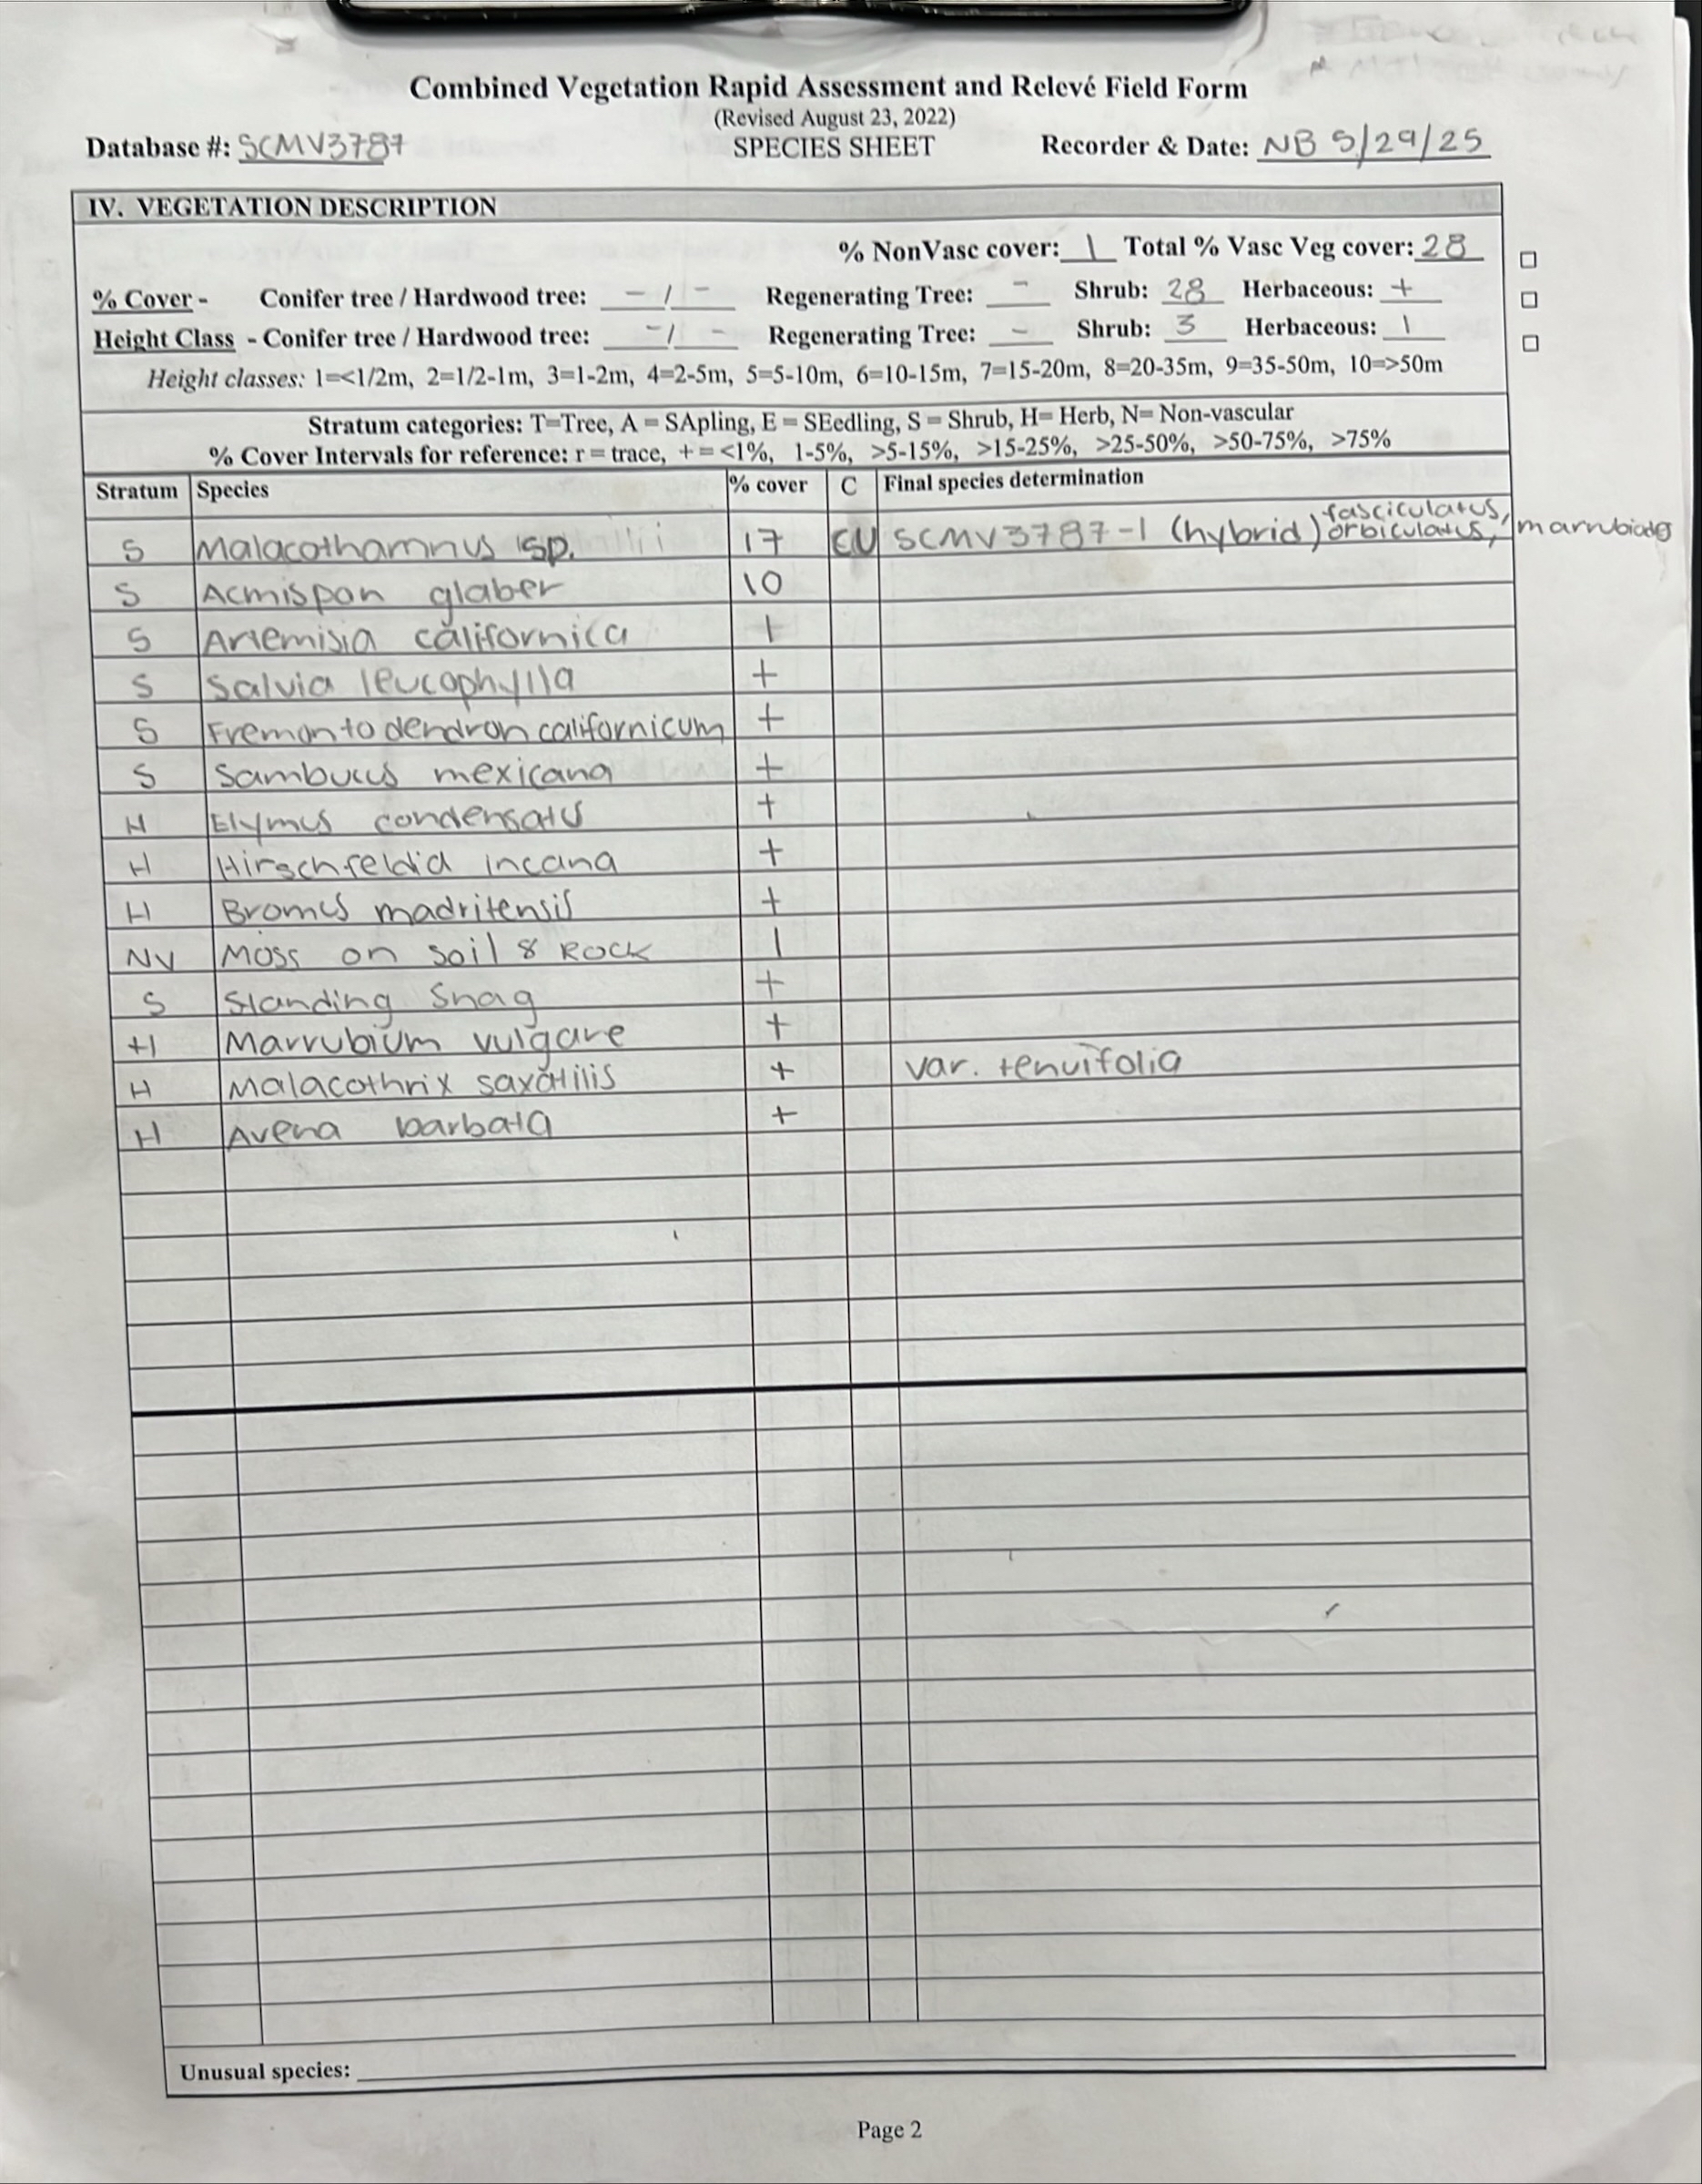 Combined Vegetation Rapid Assessment and Relevé Field Form
(Revised August 23, 2022)
Database #: SCMV3787 SPECIES SHEET Recorder & Date: NB 5/29/25
IV. VEGETATION DESCRIPTION
% NonVasc cover: 1 Total % Vasc Veg cover: 28
% Cover - Conifer tree / Hardwood tree: - / - Regenerating Tree: - Shrub: 28 Herbaceous: +
Height Class - Conifer tree / Hardwood tree: - / - Regenerating Tree: - Shrub: 3 Herbaceous: 1
Height classes: 1=<1/2m, 2=1/2-1m, 3=1-2m, 4=2-5m, 5=5-10m, 6=10-15m, 7=15-20m, 8=20-35m, 9=35-50m, 10=>50m
Stratum categories: T=Tree, A = SApling, E = SEedling, S = Shrub, H= Herb, N= Non-vascular
% Cover Intervals for reference: r = trace, + = <1%, 1-5%, >5-15%, >15-25%, >25-50%, >50-75%, >75%
Stratum Species % cover C Final species determination
S Malacothamnus sp. 17 CU SCMV3787-1 (hybrid) fasciculatus, orbiculatus, marrubioides
S Acmispon glaber 10
S Artemisia californica 1
S Salvia leucophylla +
S Fremontodendron californicum +
S Sambucus mexicana +
H Elymus condensatus +
H Hirschfeldia incana +
H Bromus madritensis +
NV Moss on soil & Rock 1
S Standing Snag +
H Marrubium vulgare +
H Malacothrix saxatilis + var. tenuifolia
H Avena barbata +
Unusual species:
Page 2